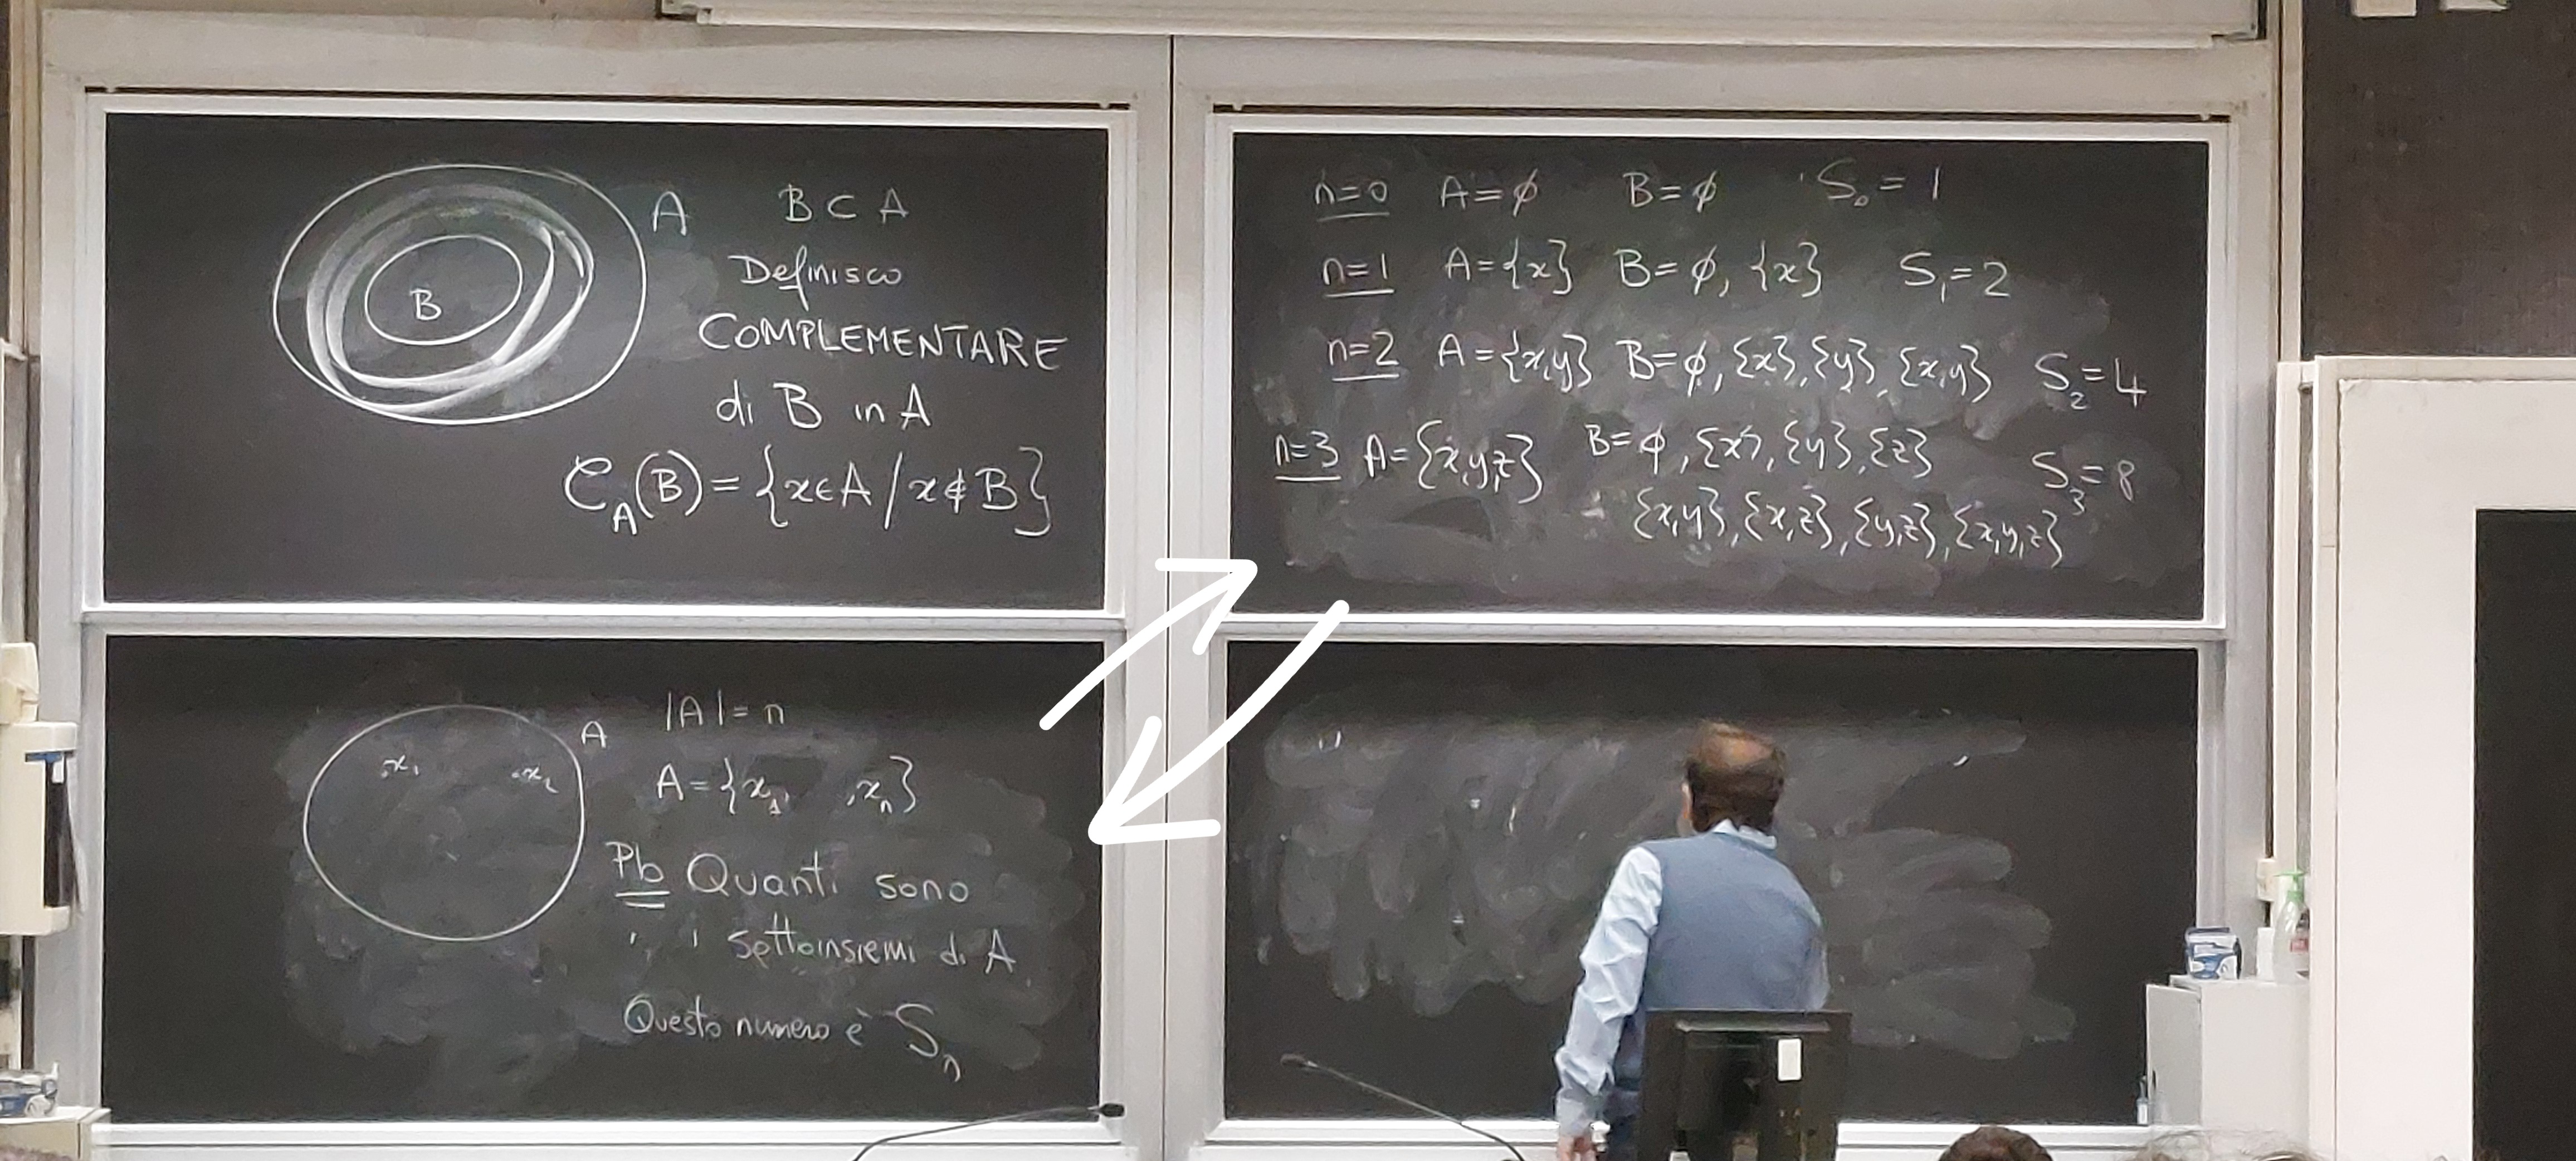 A B ⊂ A
B
Definisco
COMPLEMENTARE
di B in A
C_A(B) = {x∈A / x∉B}
A |A| = n
x₁ x₂
A = {x₁, ,xₙ}
Pb Quanti sono
i sottoinsiemi di A
Questo numero è Sₙ
n=0 A=∅ B=∅ S₀=1
n=1 A={x} B=∅, {x} S₁=2
n=2 A={x,y} B=∅, {x}, {y}, {x,y} S₂=4
n=3 A={x,y,z} B=∅, {x}, {y}, {z} S₃=8
{x,y}, {x,z}, {y,z}, {x,y,z}